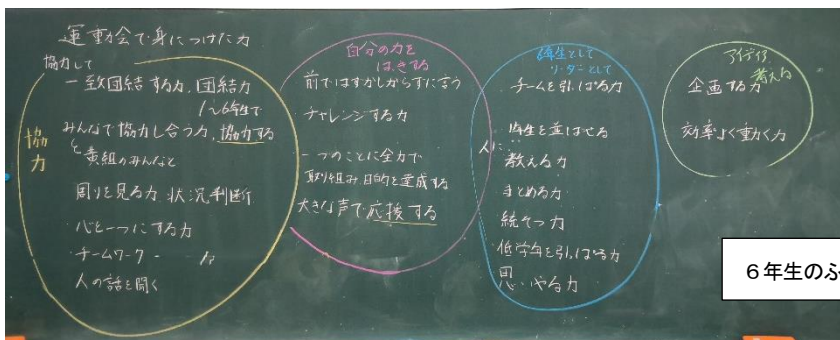 運動会で身につけた力
協力して
一致団結する力、団結力
1~6年生で
みんなで協力し合う力、協力する
と黄組のみんなと
周りを見る力 状況判断
心を一つにする力
チームワーク
人の話を聞く
協力
自分の力を
はっきする
前ではずかしがらずに言う
チャレンジする力
一つのことに全力で
取り組み、目的を達成する
大きな声で応援する
6年生として
リーダーとして
チームを引っぱる力
年生を並ばせる
人に
教える力
まとめる力
統そつ力
低学年を引っぱる力
思いやる力
アイディア
考える
企画する力
効率よく動く力
6年生のふ